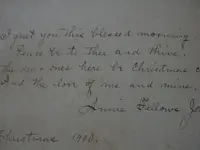 I greet you this blessed morning
to Thee and Thine!
ones here be Christmas
And the love of me and mine.
Annie Fellows Jo
Christmas 1908.